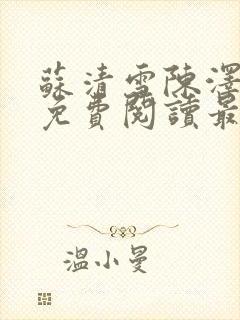 蘇清雪陳澤
免費閱讀最
溫小曼